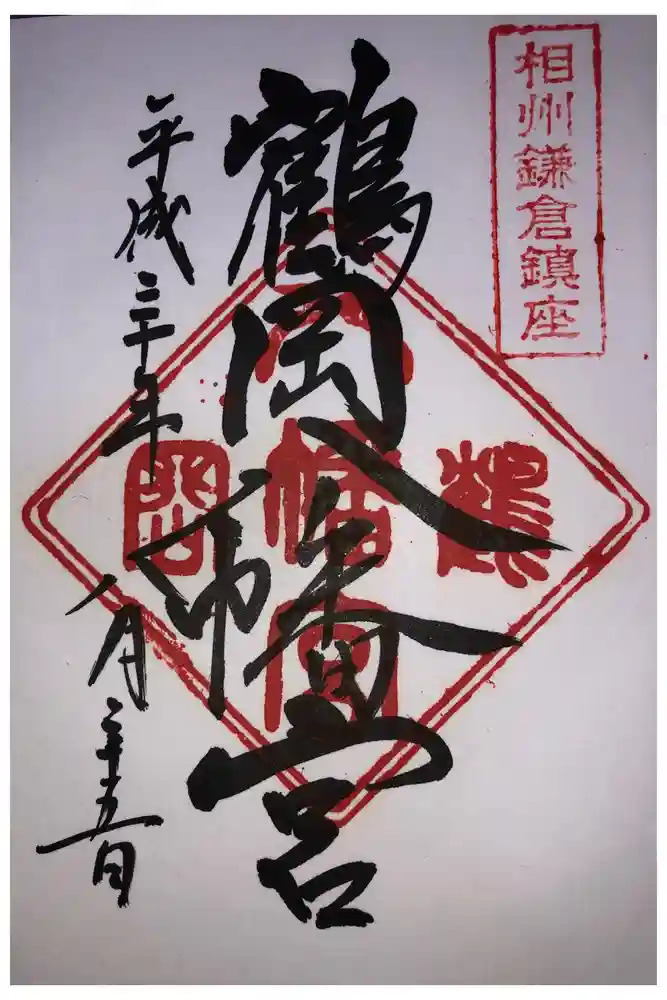 相州鎌倉鎮座
鶴岡八幡宮
鶴岡八幡宮
平成三十年八月二十五日